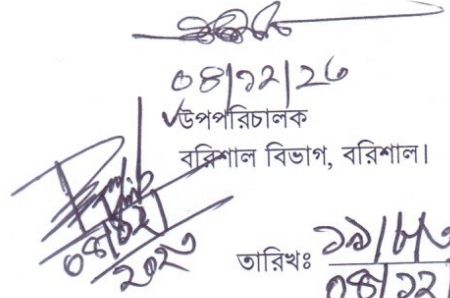 ০৪|১২|২৩
উপপরিচালক
বরিশাল বিভাগ, বরিশাল।
০৪|১২|
২০২৩
তারিখঃ
০৪|১২|